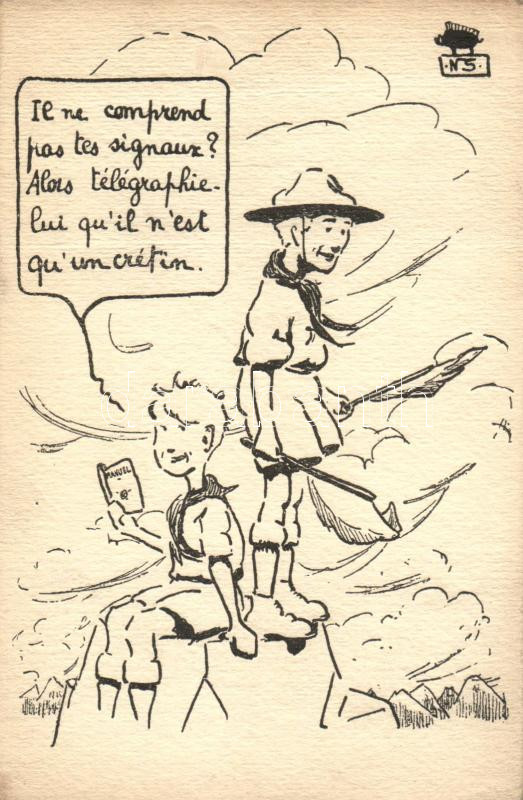 Il ne comprend
pas tes signaux?
Alors télégraphie-
lui qu'il n'est
qu'un crétin.
N5.
MANUEL
darabanth